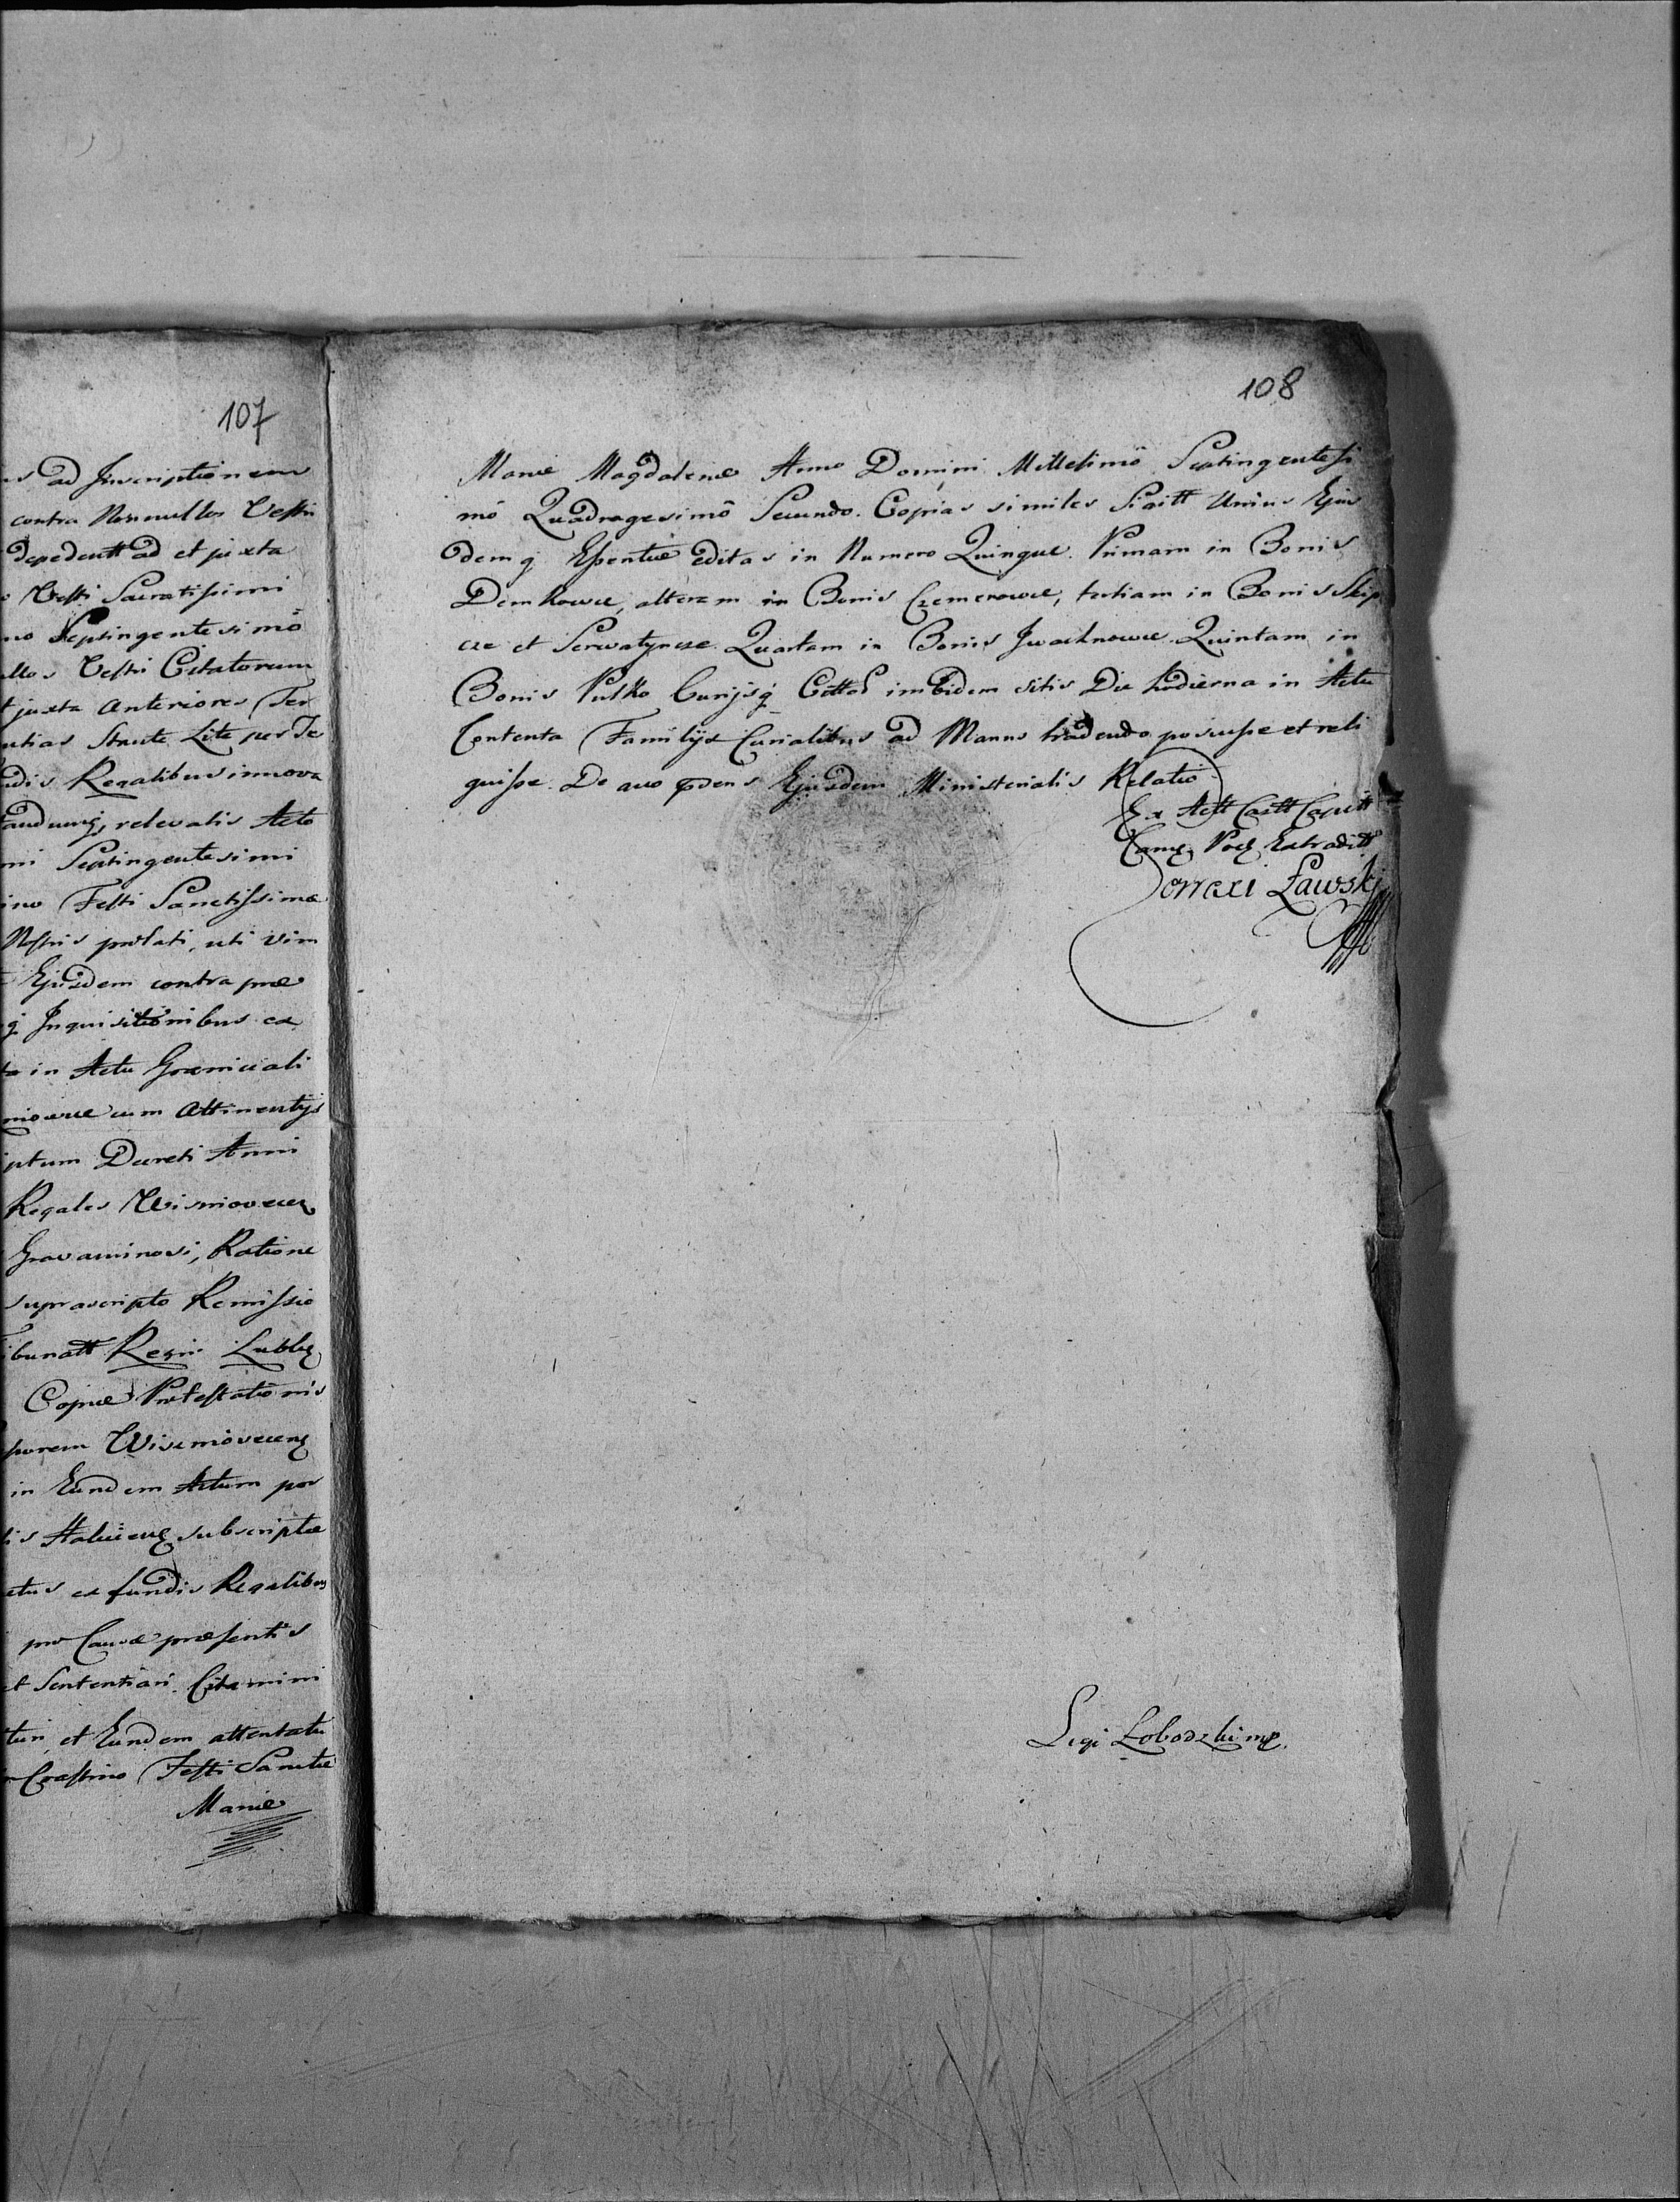 107
ad Inscriptionem
contra Nonnullos Vestri
depedentt ad et juxta
Vestri Sacratissimi
Septingentesimô
Vestri Citatorum
juxta Anteriores Ter
Stante Lite per Te
Regalibus innova
relevatis Acto
Septingentesimi
Festi Sanctissimæ
Nostris prolati, uti vim
Ejusdem contra præ
Inquisitionibus ex
in Actu Graniciali
cum Attinentijs
Decreti Anni
Regales
Gravaminosi, Ratione
suprascripto Remissio
Regni Lublꝫ
Copiæ Protestationis
in Eundem Actum por
subscriptæ
ex fundis Regalibus
pro Causæ præsentis
et Sententiari Citamini
et Eundem attentatu
Crastino Festi Sanctæ
Mariæ
108
Mariæ Magdalenæ Anno Domini Millesimô Septingentesi
mô Quadragesimô Secundo. Copias similes Sigitt Unius Ejus
demq Essentiæ editas in Numero Quinque. Primam in Bonis
Demkowce, alteram in Bonis Czemerowce, tertiam in Bonis Skip
cze et Serwatynce Quartam in Bonis Iwachnowce Quintam in
Bonis Pulko Curijsq ibidem sitis Die hodierna in Actu
Contenta Familijs Curialibus ad Manus tradendo posuisse et reli
quisse. De quo Ejusdem Ministerialis Relatio
Ex Actt Castt Capitt
Camꝫ Podꝫ Extraditt
Zawski
Legi Łobodzki mp.